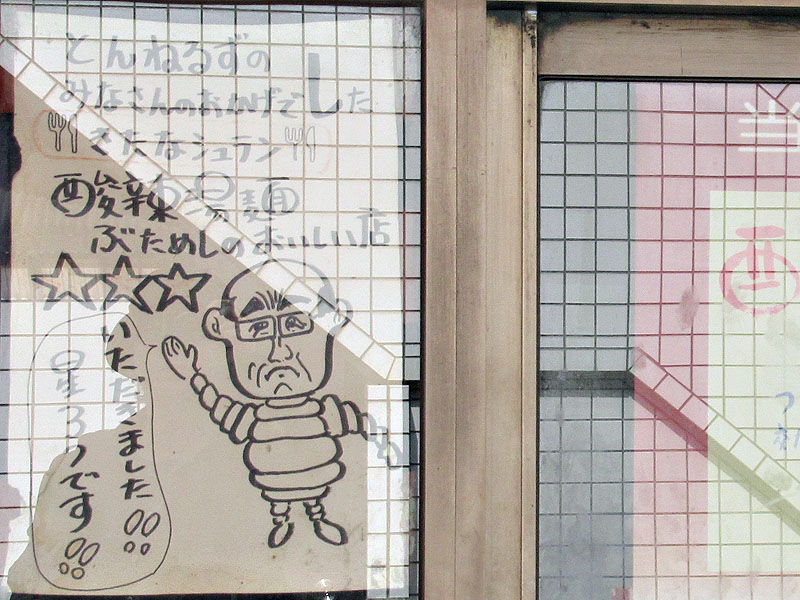 とんねるずの
みなさんのおかげでした
きたなシュラン
酸辣湯麺
ぶためしのおいしい店
いただきました!!
星3つです!!
当